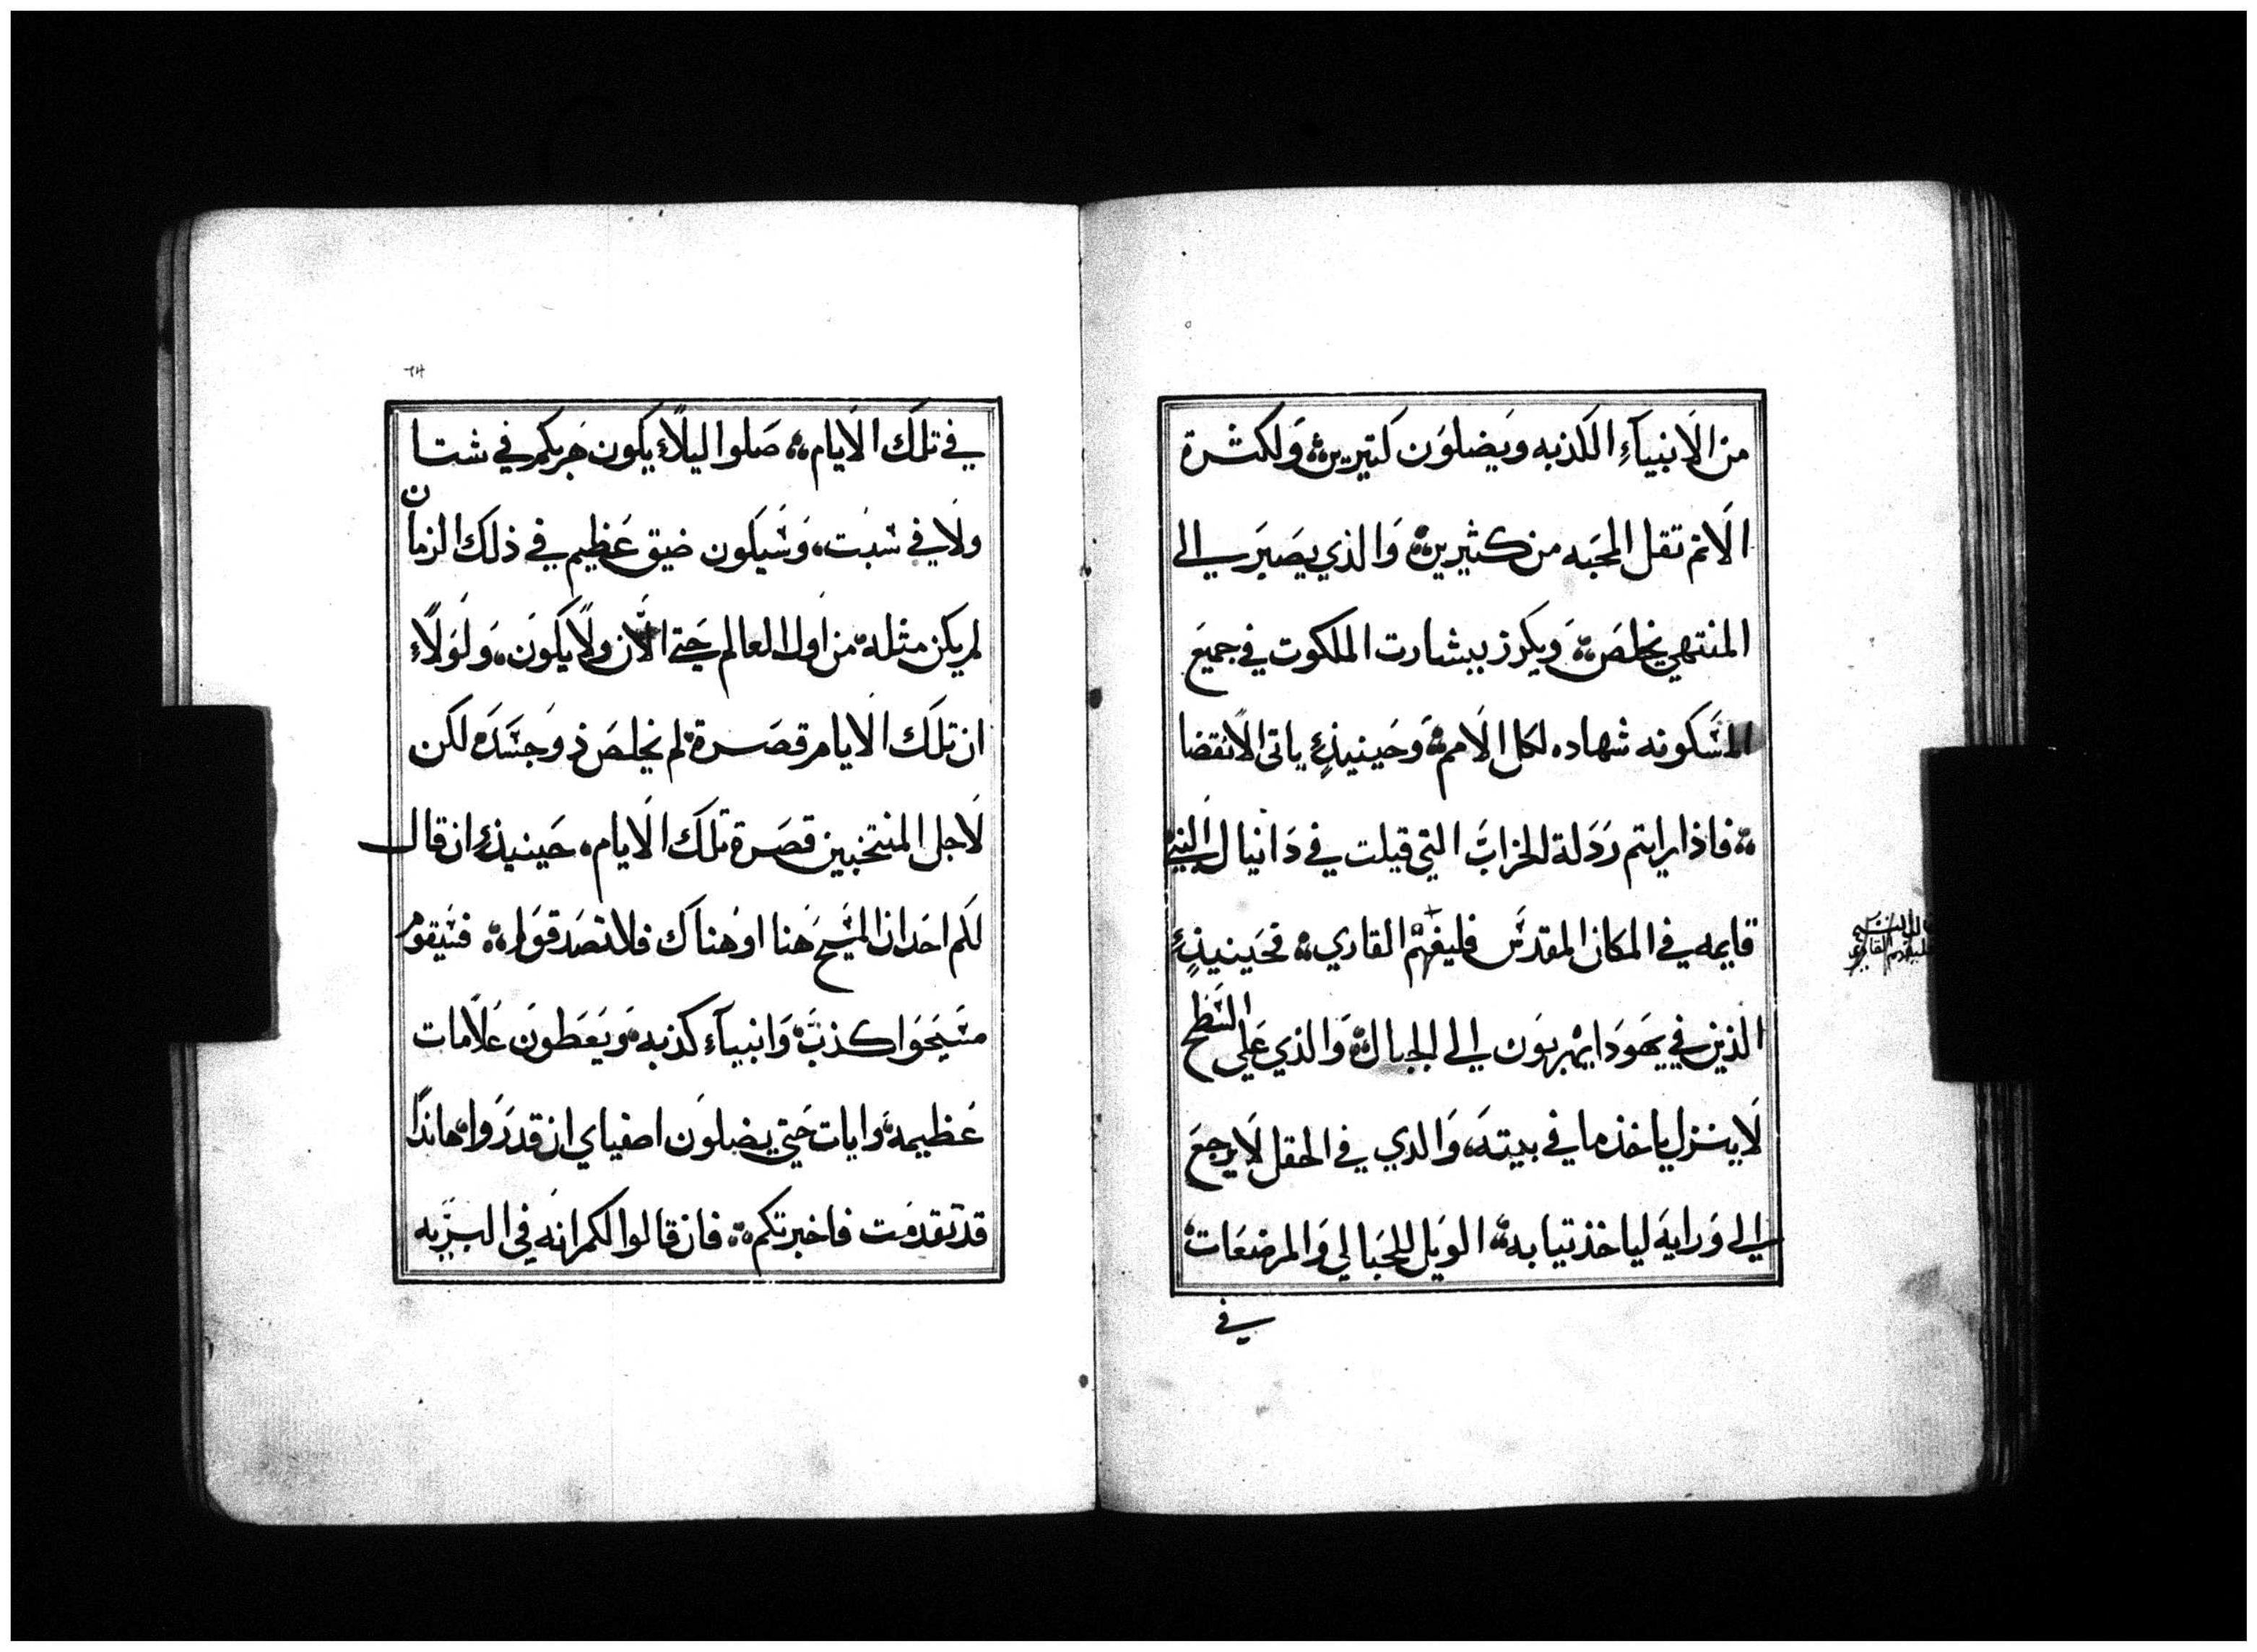 من الانبيآءِ الكذبه ويضلون كتيرين ولكثرة
الاثم تقل المحبه من كثيرين والذي يصير الى
المنتهي يخلص ويكرز ببشارت الملكوت في جميع
المسكونه شهاده لكل الامم وحينيذٍ ياتى الانقضا
فاذا رايتم ردلة الخراب التي قيلت في دانيال النبي
قايمه في المكان المقدس فليفهم القاري فحينيذٍ
الذين في يهودا يهربون الى الجبال والذي على السطح
لا ينزل ياخذ ما في بيته والدي في الحقل لا يرجع
الى ورايه لياخذ تيابه الويل للحبالي والمرضعات
في
فليفهم القاري
في تلك الايام صلوا ليلاً يكون هربكم في شتا
ولا في سبت وسيكون ضيق عظيم في ذلك الزمان
لم يكن مثله من اول العالم حتي الان ولا يكون ولولاء
ان تلك الايام قصرة لم يخلص ذو جسده لكن
لاجل المنتخبين قصرة تلك الايام حينيذٍ ان قال
لكم احد ان المسيح هنا او هناك فلا تصدقوا فسيقوم
مسيحوا كذب وانبيآء كذبه ويعطون علامات
عظيمه وايات حتي يضلون اصفياي ان قدروا هاندا
قد تقدمت فاخبرتكم فان قالوا لكم انه في البريه